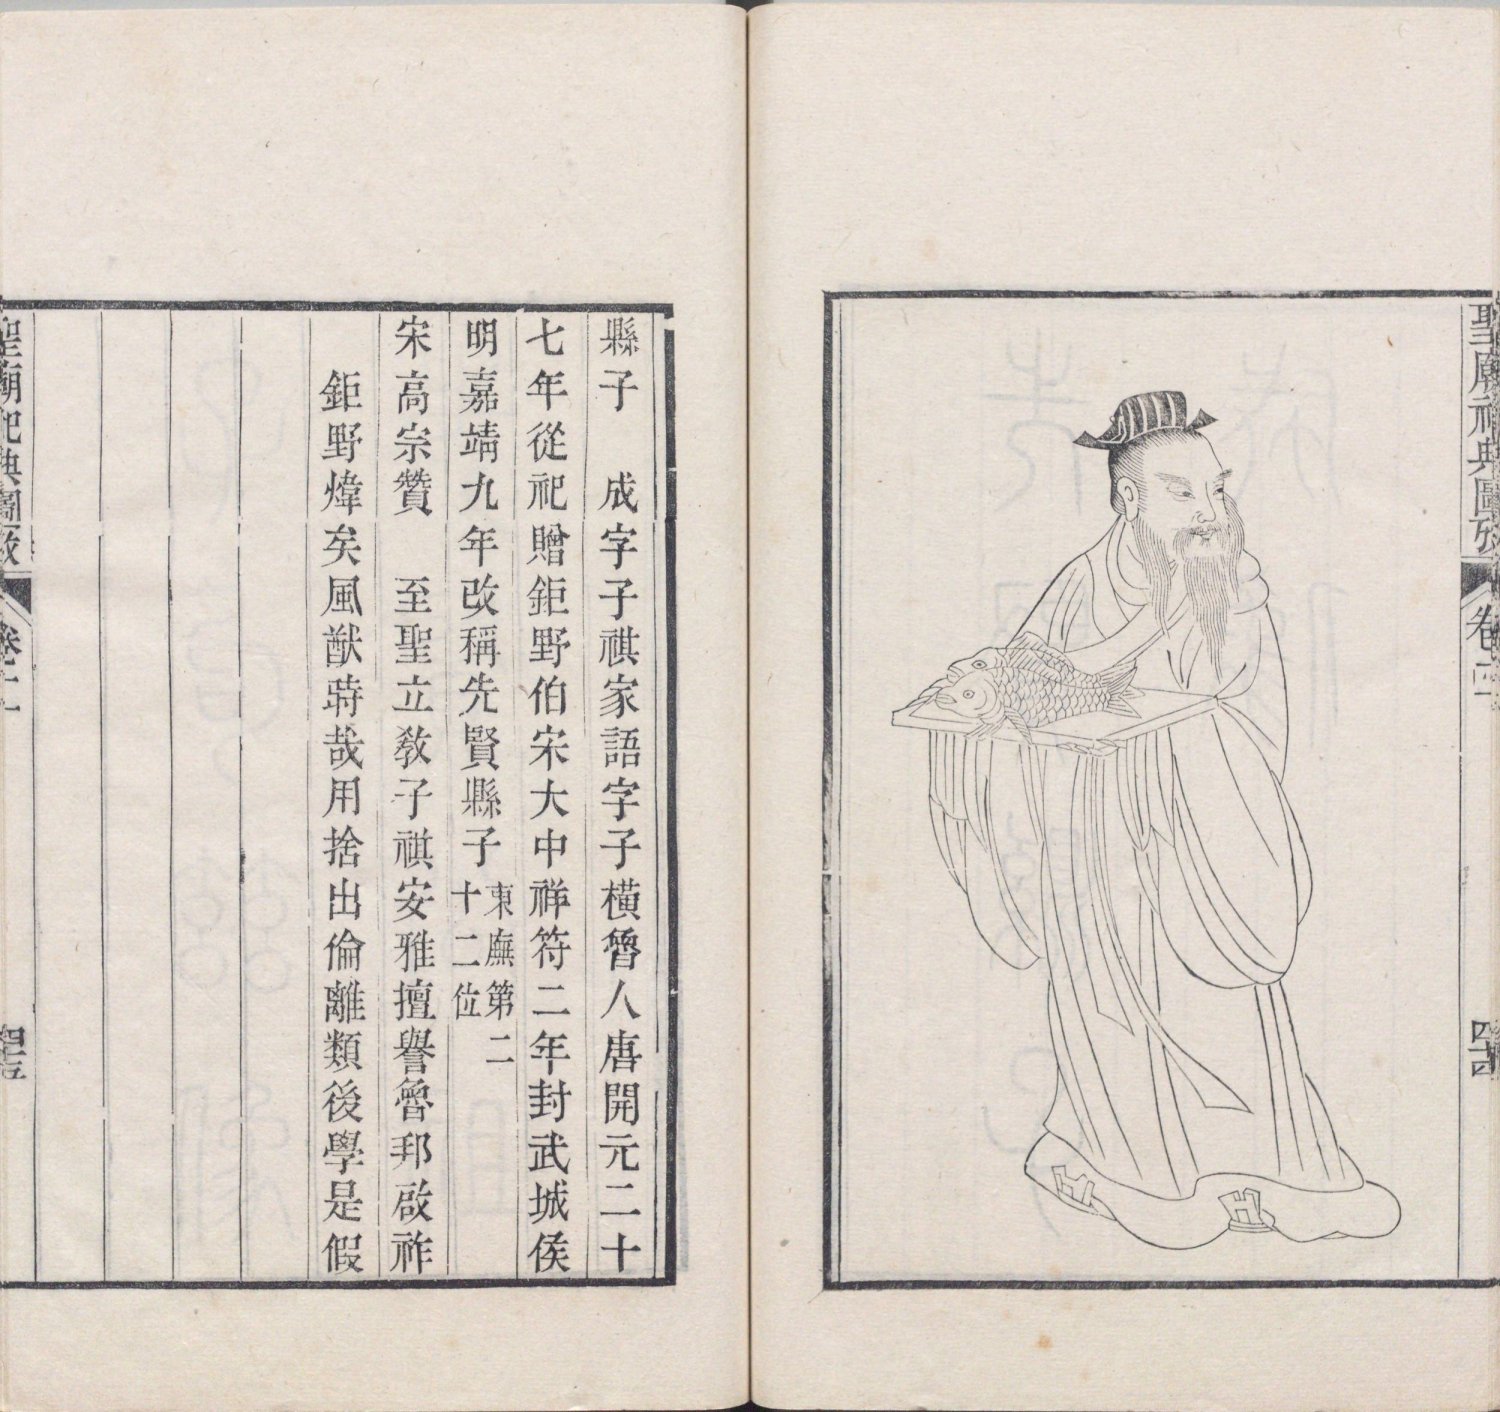 聖廟祀典圖攷
卷二
四十四
縣子　成字子祺家語字子橫魯人唐開元二十
七年從祀贈鉅野伯宋大中祥符二年封武城侯
明嘉靖九年改稱先賢縣子東廡第二
十二位
宋高宗贊　至聖立敎子祺安雅擅譽魯邦啟祚
鉅野煒矣風猷蒔哉用捨出倫離類後學是假
聖廟祀典圖攷
卷二